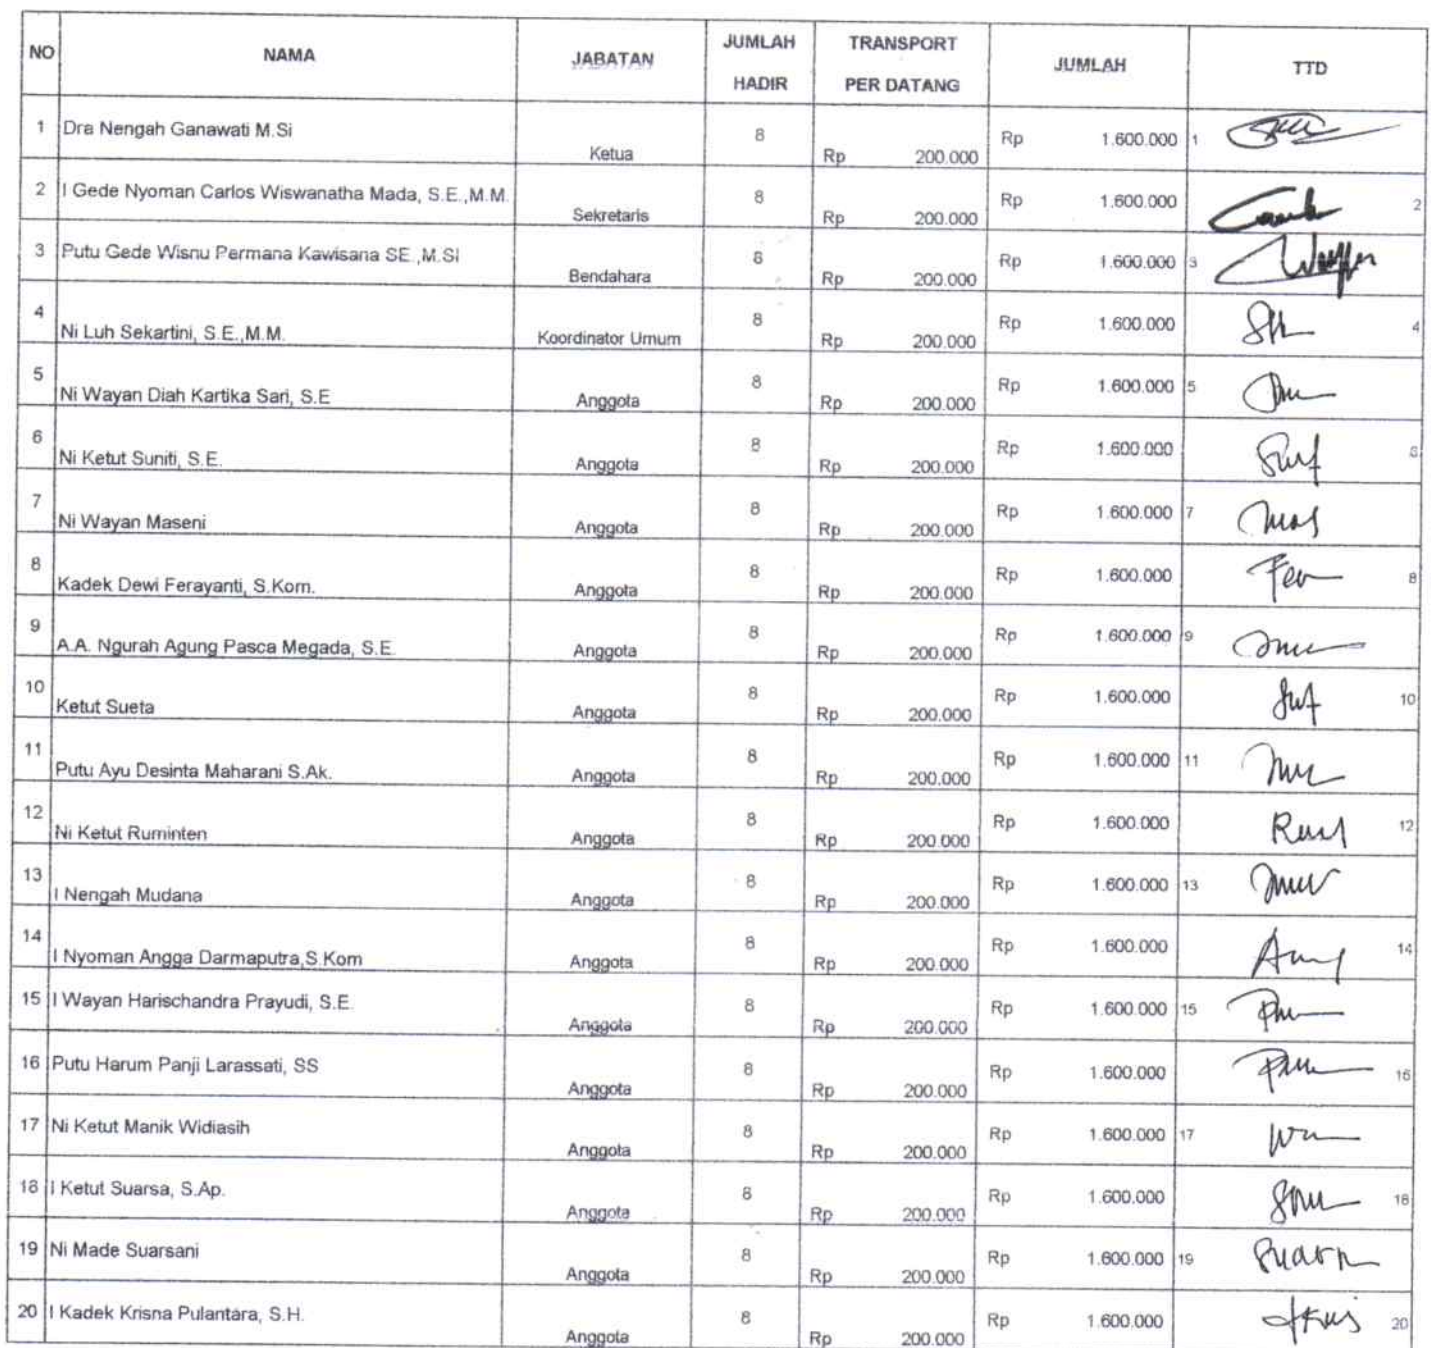 NO NAMA JABATAN JUMLAH HADIR TRANSPORT PER DATANG JUMLAH TTD
1 Dra Nengah Ganawati M.Si Ketua 8 Rp 200.000 Rp 1.600.000 1
2 I Gede Nyoman Carlos Wiswanatha Mada, S.E.,M.M. Sekretaris 8 Rp 200.000 Rp 1.600.000 2
3 Putu Gede Wisnu Permana Kawisana SE.,M.Si Bendahara 8 Rp 200.000 Rp 1.600.000 3
4 Ni Luh Sekartini, S.E.,M.M. Koordinator Umum 8 Rp 200.000 Rp 1.600.000 4
5 Ni Wayan Diah Kartika Sari, S.E Anggota 8 Rp 200.000 Rp 1.600.000 5
6 Ni Ketut Suniti, S.E. Anggota 8 Rp 200.000 Rp 1.600.000 6
7 Ni Wayan Maseni Anggota 8 Rp 200.000 Rp 1.600.000 7
8 Kadek Dewi Ferayanti, S.Kom. Anggota 8 Rp 200.000 Rp 1.600.000 8
9 A.A. Ngurah Agung Pasca Megada, S.E. Anggota 8 Rp 200.000 Rp 1.600.000 9
10 Ketut Sueta Anggota 8 Rp 200.000 Rp 1.600.000 10
11 Putu Ayu Desinta Maharani S.Ak. Anggota 8 Rp 200.000 Rp 1.600.000 11
12 Ni Ketut Ruminten Anggota 8 Rp 200.000 Rp 1.600.000 12
13 I Nengah Mudana Anggota 8 Rp 200.000 Rp 1.600.000 13
14 I Nyoman Angga Darmaputra,S.Kom Anggota 8 Rp 200.000 Rp 1.600.000 14
15 I Wayan Harischandra Prayudi, S.E. Anggota 8 Rp 200.000 Rp 1.600.000 15
16 Putu Harum Panji Larassati, SS Anggota 8 Rp 200.000 Rp 1.600.000 16
17 Ni Ketut Manik Widiasih Anggota 8 Rp 200.000 Rp 1.600.000 17
18 I Ketut Suarsa, S.Ap. Anggota 8 Rp 200.000 Rp 1.600.000 18
19 Ni Made Suarsani Anggota 8 Rp 200.000 Rp 1.600.000 19
20 I Kadek Krisna Pulantara, S.H. Anggota 8 Rp 200.000 Rp 1.600.000 20